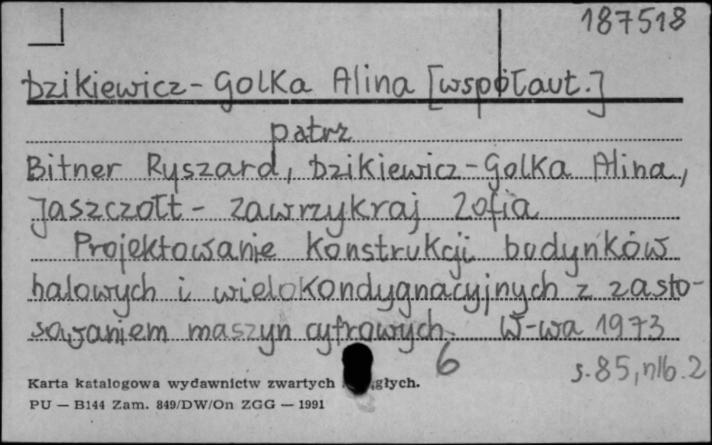 187518
Dzikiewicz-Golka Alina [współaut.]
patrz
Bitner Ryszard, Dzikiewicz-Golka Alina,
Jaszczołt - Zawrzykraj Zofia
Projektowanie konstrukcji budynków
halowych i wielokondygnacyjnych z zasto-
sowaniem maszyn cyfrowych. W-wa 1973
6 s.85, nlb.2
Karta katalogowa wydawnictw zwartych głych.
PU — B144 Zam. 849/DW/On ZGG — 1991